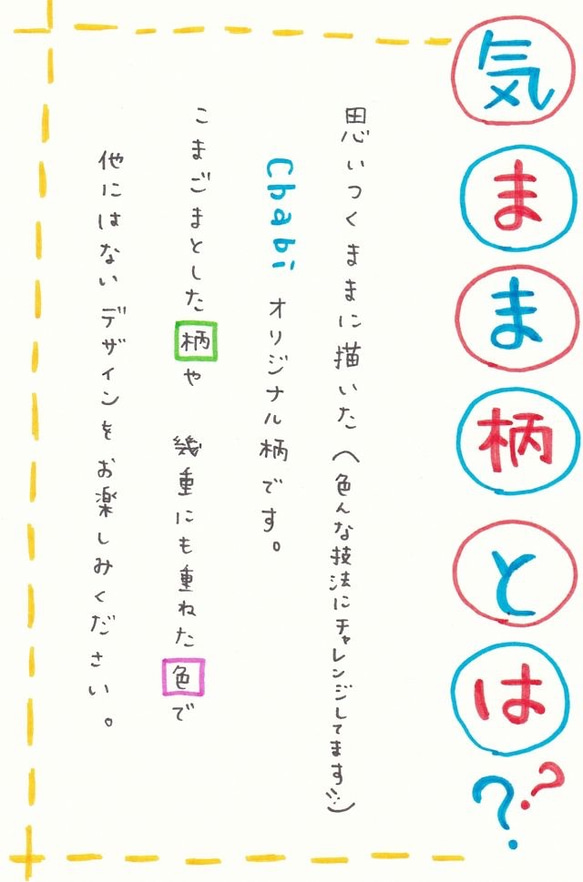 気まま柄とは??
思いつくままに描いた(色んな技法にチャレンジしてます!!)
Chabi オリジナル柄です。
こまごまとした柄や 幾重にも重ねた色で
他にはないデザインをお楽しみください。